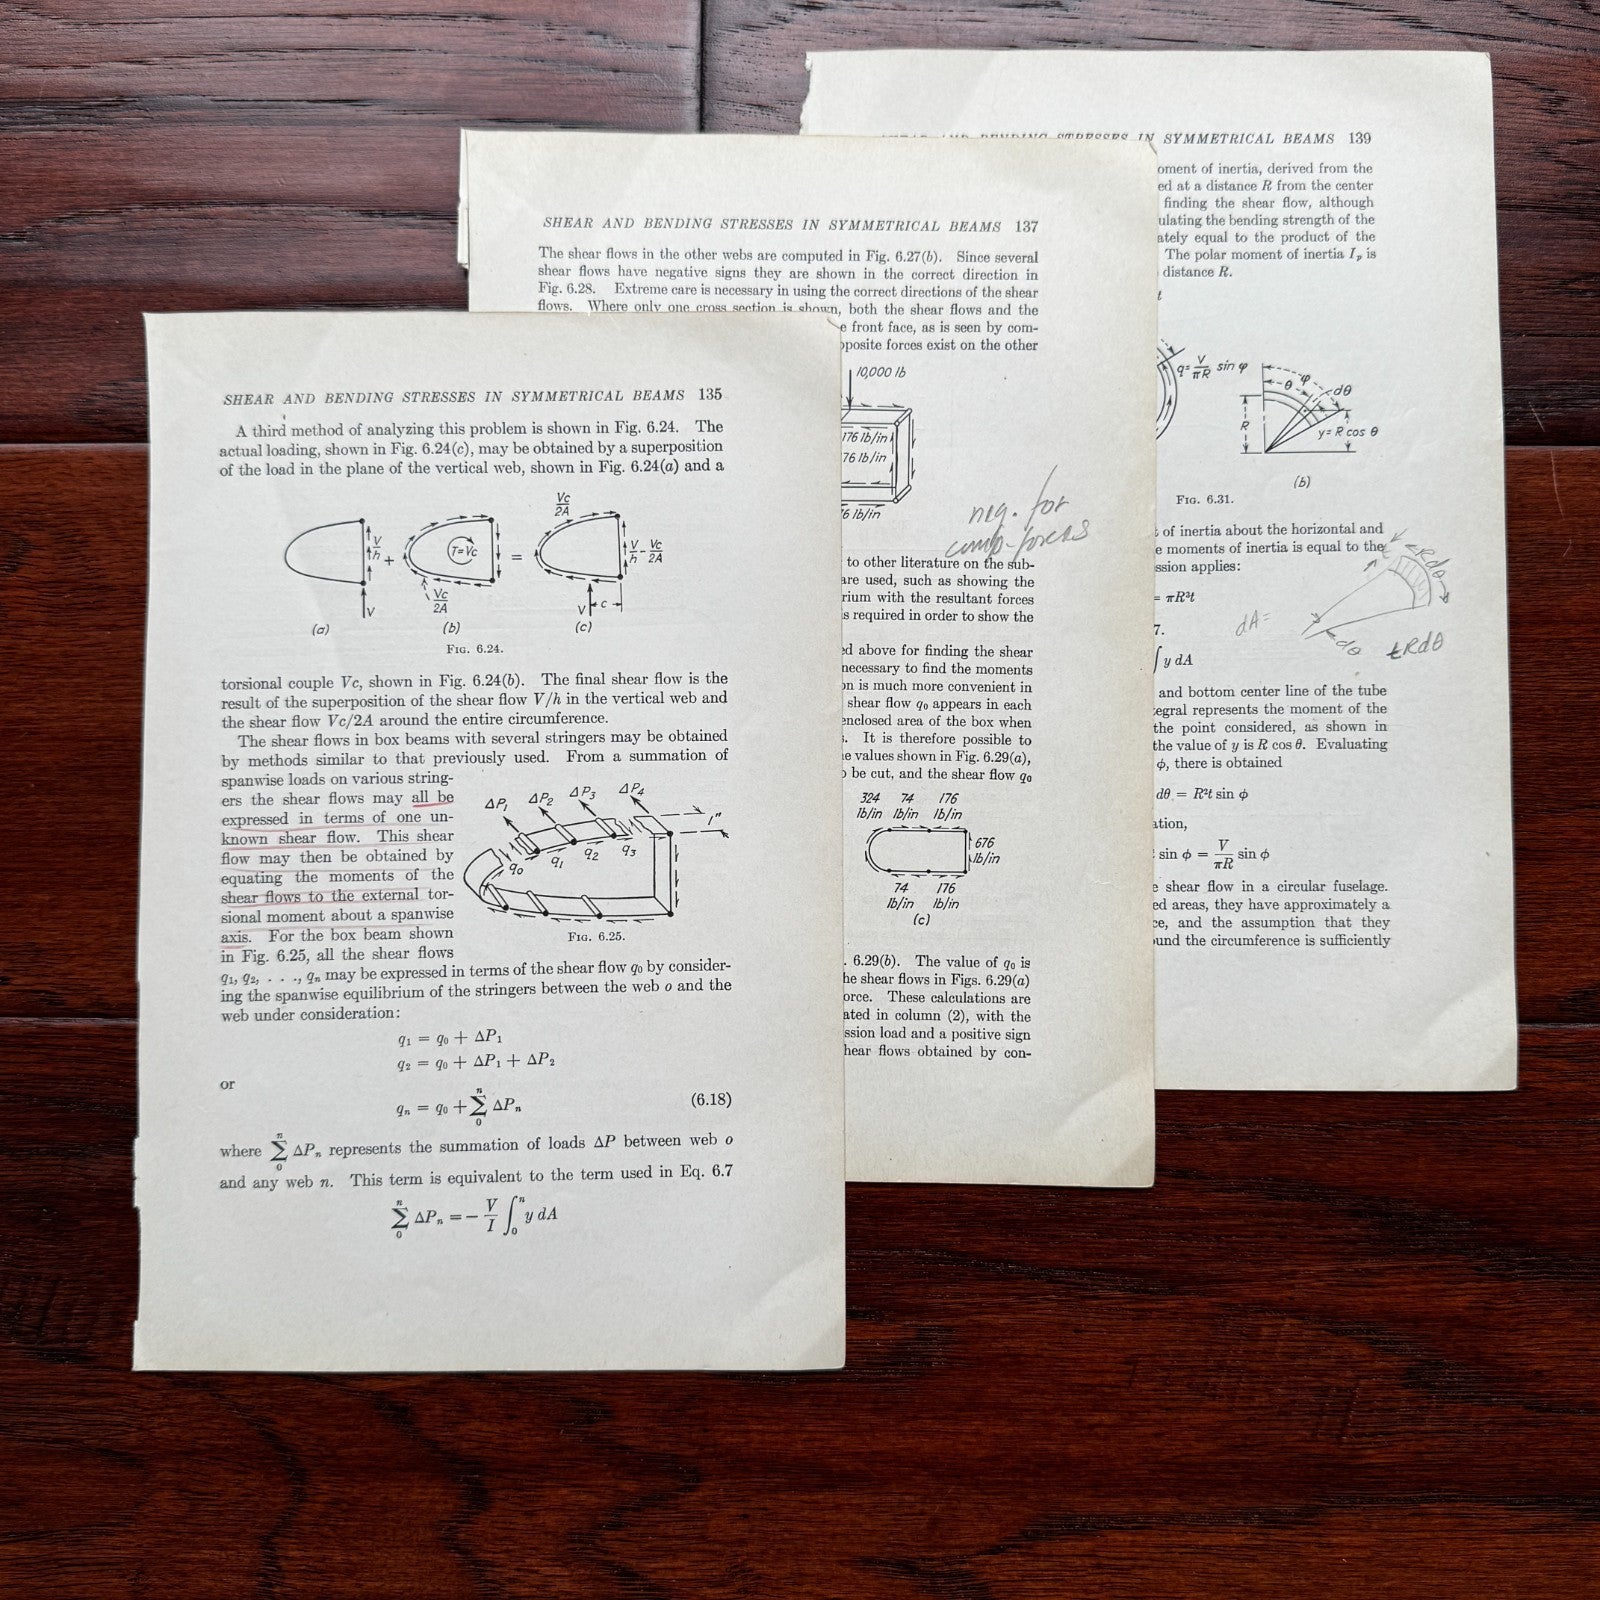 SHEAR AND BENDING STRESSES IN SYMMETRICAL BEAMS 135
A third method of analyzing this problem is shown in Fig. 6.24. The
actual loading, shown in Fig. 6.24(c), may be obtained by a superposition
of the load in the plane of the vertical web, shown in Fig. 6.24(a) and a
V/h + T=Vc = Vc/2A V/h - Vc/2A
Vc/2A
V V c
(a) (b) (c)
FIG. 6.24.
torsional couple Vc, shown in Fig. 6.24(b). The final shear flow is the
result of the superposition of the shear flow V/h in the vertical web and
the shear flow Vc/2A around the entire circumference.
The shear flows in box beams with several stringers may be obtained
by methods similar to that previously used. From a summation of
spanwise loads on various string-
ers the shear flows may all be
expressed in terms of one un-
known shear flow. This shear
flow may then be obtained by
equating the moments of the
shear flows to the external tor-
sional moment about a spanwise
axis. For the box beam shown
in Fig. 6.25, all the shear flows
ΔP₁ ΔP₂ ΔP₃ ΔP₄
1"
q₀ q₁ q₂ q₃
FIG. 6.25.
q₁, q₂, . . ., qₙ may be expressed in terms of the shear flow q₀ by consider-
ing the spanwise equilibrium of the stringers between the web o and the
web under consideration:
q₁ = q₀ + ΔP₁
q₂ = q₀ + ΔP₁ + ΔP₂
or
qₙ = q₀ + ∑₀ⁿ ΔPₙ (6.18)
where ∑₀ⁿ ΔPₙ represents the summation of loads ΔP between web o
and any web n. This term is equivalent to the term used in Eq. 6.7
∑₀ⁿ ΔPₙ = − V/I ∫₀ⁿ y dA
SHEAR AND BENDING STRESSES IN SYMMETRICAL BEAMS 137
The shear flows in the other webs are computed in Fig. 6.27(b). Since several
shear flows have negative signs they are shown in the correct direction in
Fig. 6.28. Extreme care is necessary in using the correct directions of the shear
flows. Where only one cross section is shown, both the shear flows and the
e front face, as is seen by com-
pposite forces exist on the other
10,000 lb
176 lb/in
76 lb/in
6 lb/in
neg. for
comp. forces
to other literature on the sub-
are used, such as showing the
rium with the resultant forces
s required in order to show the
ed above for finding the shear
necessary to find the moments
on is much more convenient in
shear flow q₀ appears in each
enclosed area of the box when
. It is therefore possible to
e values shown in Fig. 6.29(a),
o be cut, and the shear flow q₀
324 74 176
lb/in lb/in lb/in
676
lb/in
74 176
lb/in lb/in
(c)
. 6.29(b). The value of q₀ is
he shear flows in Figs. 6.29(a)
orce. These calculations are
ated in column (2), with the
ssion load and a positive sign
hear flows obtained by con-
SHEAR AND BENDING STRESSES IN SYMMETRICAL BEAMS 139
oment of inertia, derived from the
ed at a distance R from the center
finding the shear flow, although
ulating the bending strength of the
ately equal to the product of the
The polar moment of inertia Iₚ is
distance R.
t
q = V/πR sin φ
φ
θ dθ
R y = R cos θ
(b)
FIG. 6.31.
t of inertia about the horizontal and
e moments of inertia is equal to the
ssion applies:
= πR³t
t Rdθ
7.
dA=
dθ tRdθ
∫ y dA
and bottom center line of the tube
egral represents the moment of the
the point considered, as shown in
the value of y is R cos θ. Evaluating
φ, there is obtained
dθ = R²t sin φ
ation,
sin φ = V/πR sin φ
e shear flow in a circular fuselage.
ed areas, they have approximately a
ce, and the assumption that they
und the circumference is sufficiently